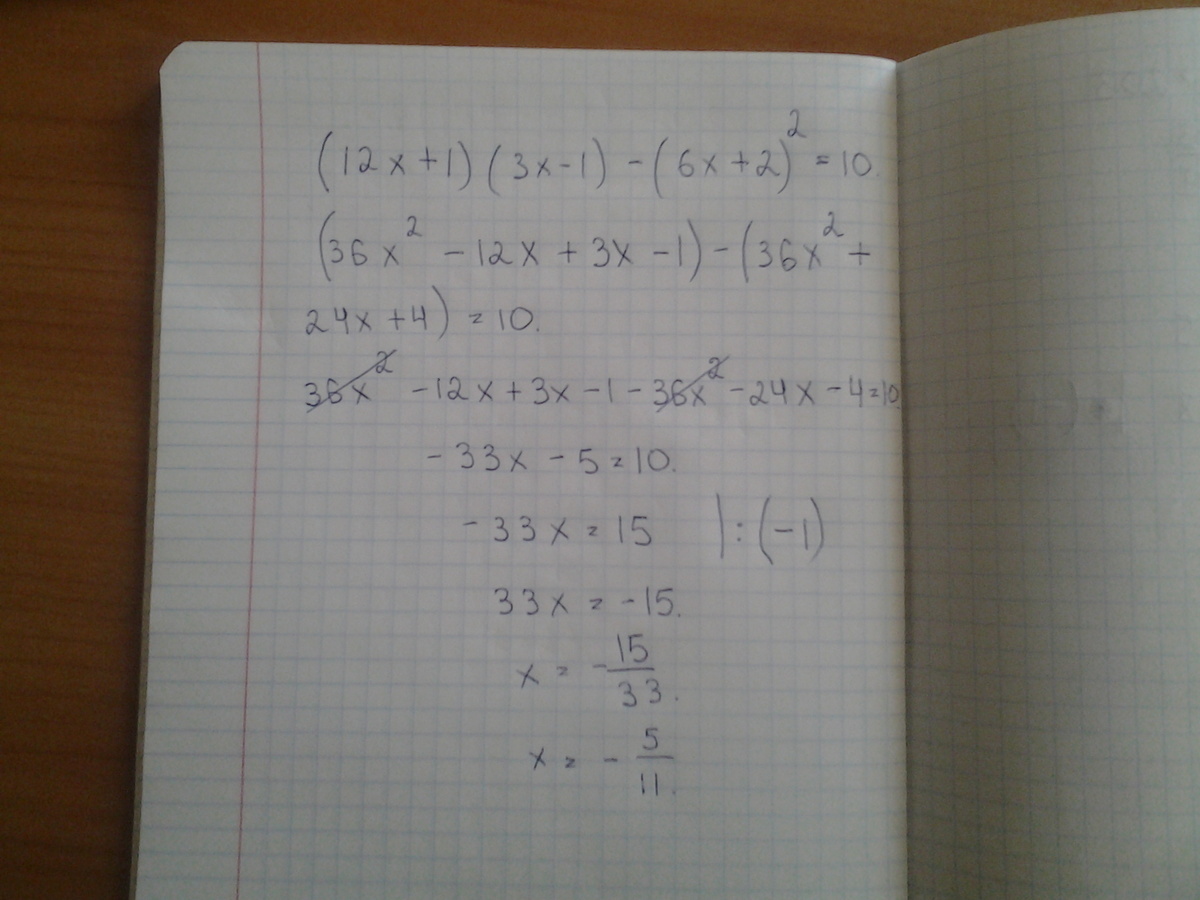 (12x+1)(3x-1)-(6x+2)²=10.
(36x²-12x+3x-1)-(36x²+
24x+4)=10.
36x²-12x+3x-1-36x²-24x-4=10.
-33x-5=10.
-33x=15 |:(-1)
33x=-15.
x=-15/33.
x=-5/11.